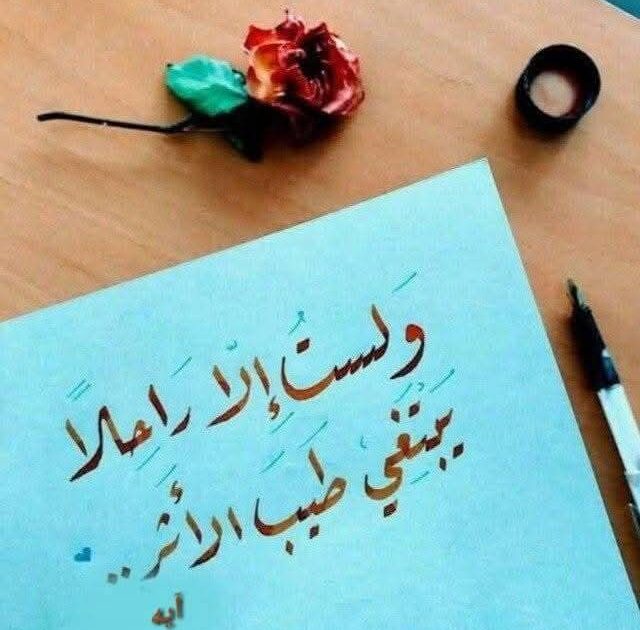 وَلستُ إلّا رَاحِلاً
يَبْتَغِي طِيَبَ الأَثَر ..
آيه